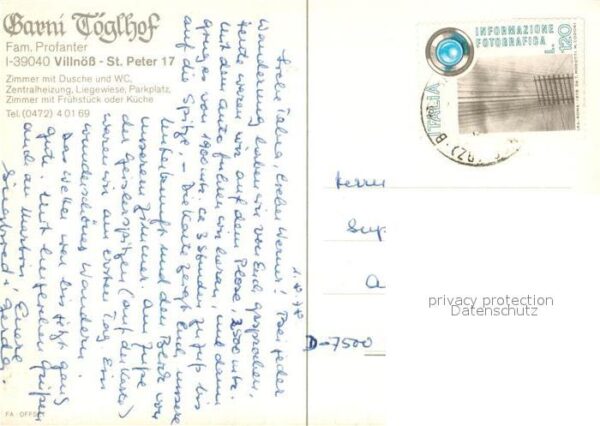 Garni Töglhof
Fam. Profanter
I-39040 Villnöß - St. Peter 17
Zimmer mit Dusche und WC,
Zentralheizung, Liegewiese, Parkplatz,
Zimmer mit Frühstück oder Küche
Tel. (0472) 4 01 69
Liebe Fabia, lieber Werner! Bei jeder
Wanderung haben wir von Euch gesprochen,
heute waren wir auf dem Plose, 2500 mtr.
mit dem Auto fuhren wir heran, und dann
gings von 1900 mtr. ca 3 Stunden zu Fuß bis
auf die Spitze. – Die Karte zeigt Euch unsere
Unterkunft und den Blick von
unserem Zimmer. Am Fuße
der Geislerspitzen (auf der Karte)
waren wir am ersten Tag. Ein
wunderschönes Wandern.
Das Wetter war bis jetzt ganz
gut. Mit herzlichen Grüßen
auch an Martin, Euere
Siegfried + Gerda.
INFORMAZIONE
FOTOGRAFICA
ITALIA
L. 120
Herrn
D-7500
privacy protection
Datenschutz